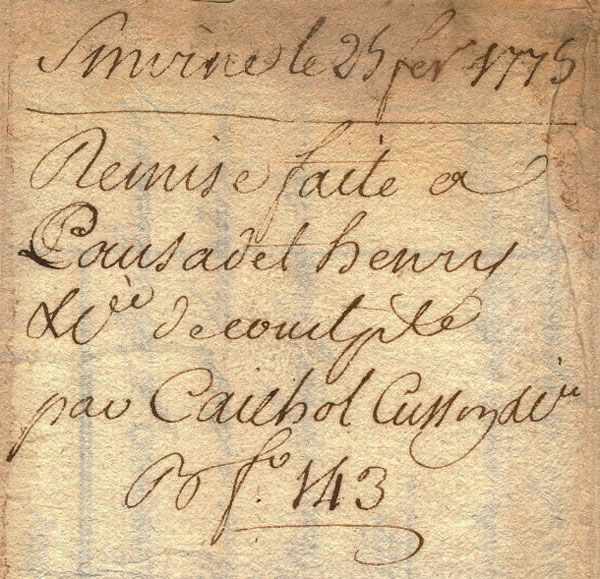 Smirne le 25 fer 1775
Remise faite a
henry
de constple
par Cailhol Cusson
fo. 143